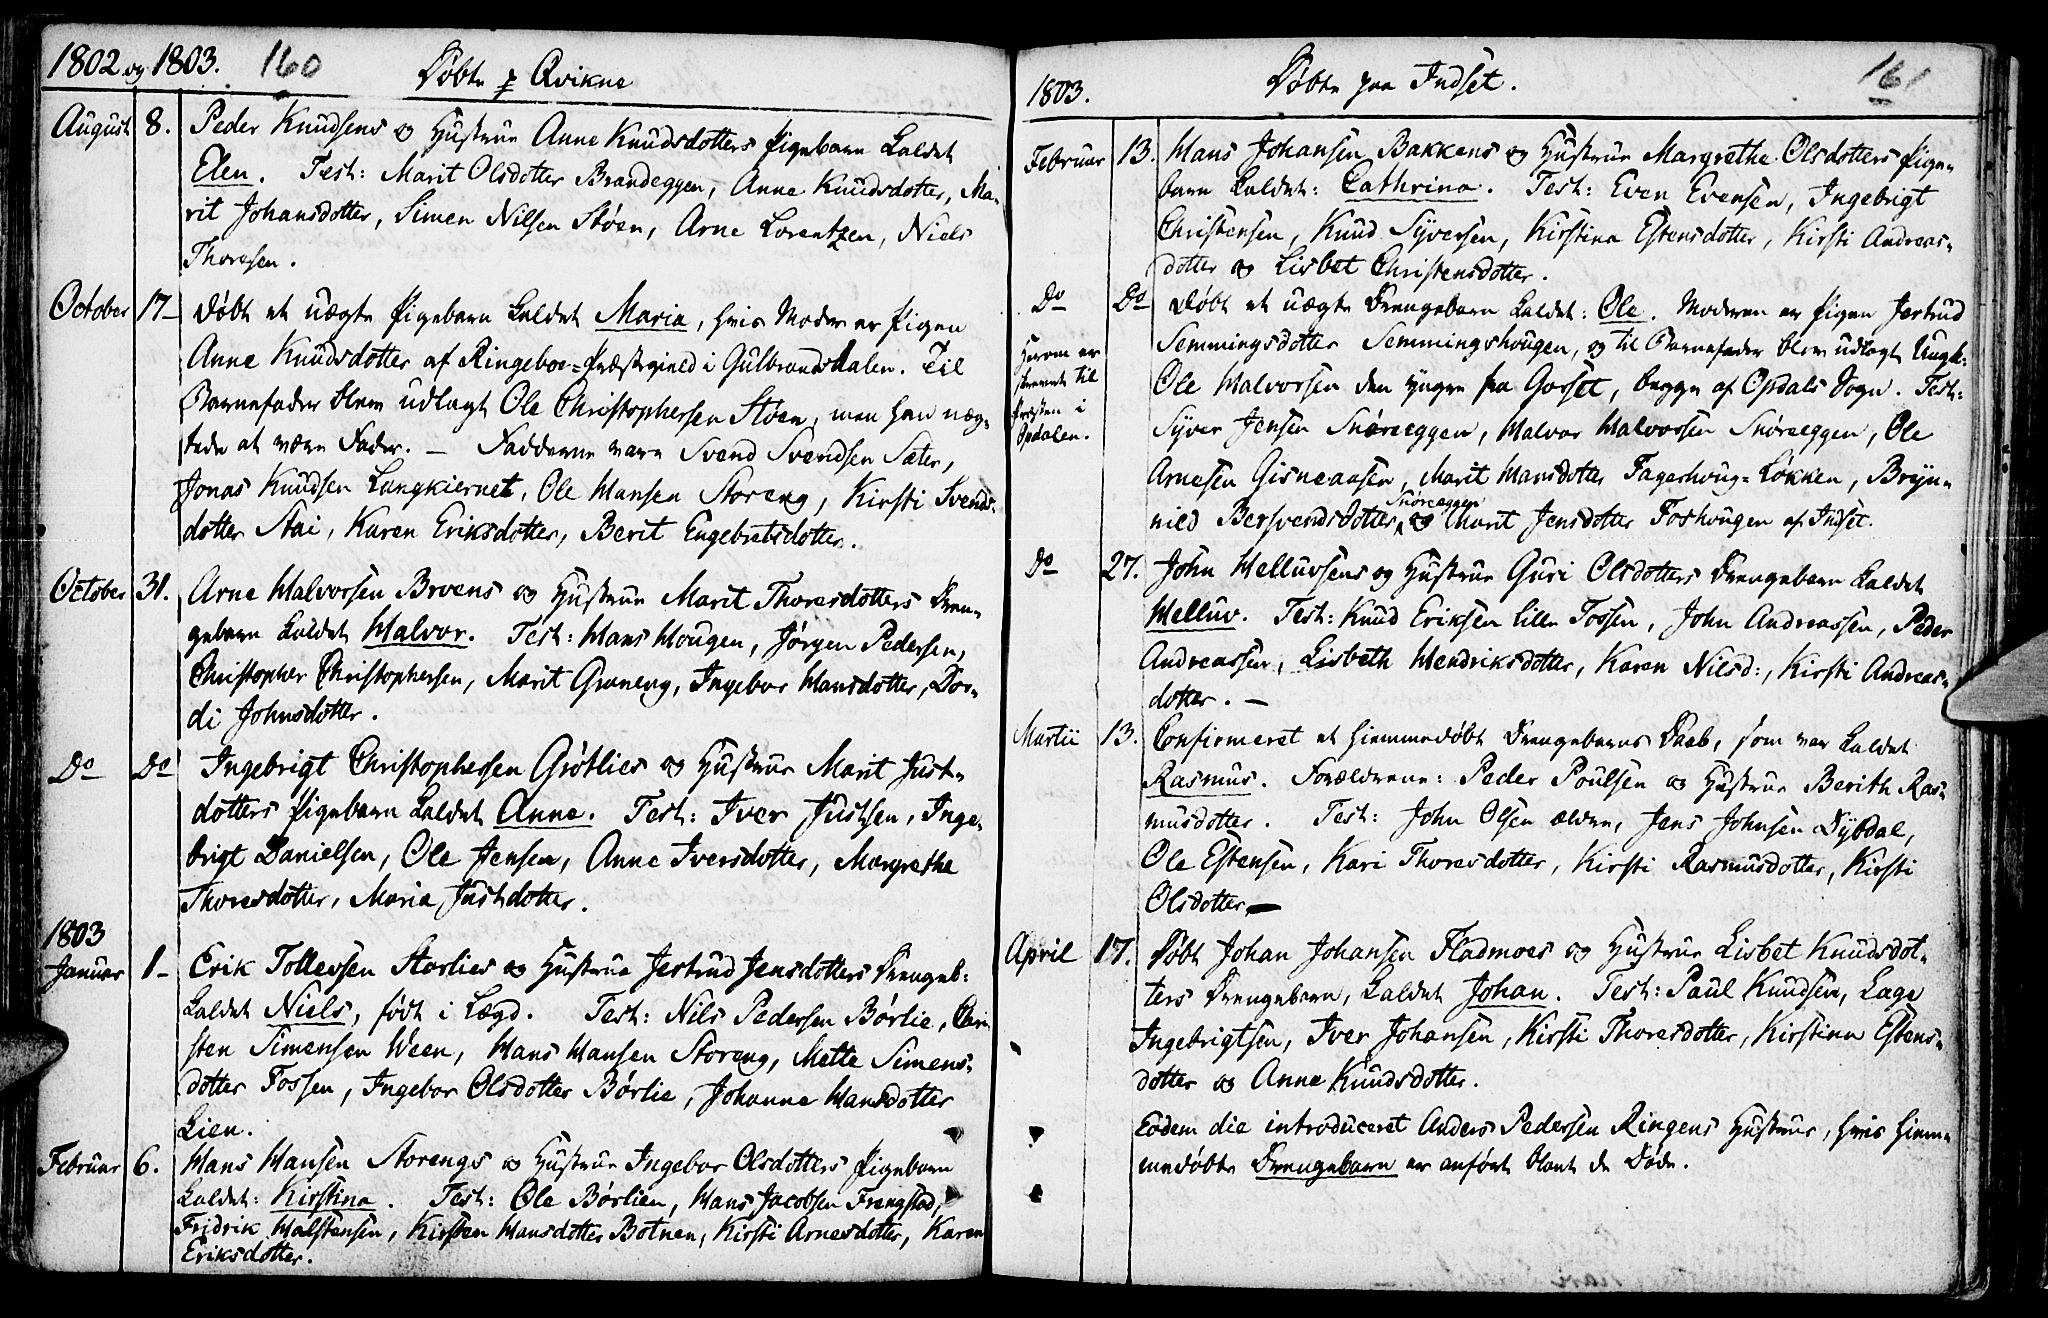 1802 og 1803. 160
Døbte p Qvikne
August 8. Peder Knudsens og Hustrue Anne Knudsdotters Pigebarn kaldet
Elen. Test: Marit Olsdotter Brandeggen, Anne Knudsdotter, Ma-
rit Johansdotter, Simen Nilsen Støen, Arne Lorentzen, Niels
Thoresen.
October 17- Døbt et uægte Pigebarn kaldet Maria, hvis Moder er Pigen
Anne Knudsdotter af Ringeboe-Præstegield i Gulbrandsdalen. Til
Barnefader blev udlagt Ole Christophersen Støen, men han næg-
tede at være Fader. — Fadderne vare Svend Svendsen Sæter,
Jonas Knudsen Langkiernet, Ole Hansen Storeng, Kirsti Svends-
dotter Stai, Karen Eriksdotter, Berit Engebretsdotter.
October 31. Arne Halvorsen Broens og Hustrue Marit Thoresdotters Dren-
gebarn kaldet Halvor. Test: Hans Hougen, Jørgen Pedersen,
Christopher Christophersen, Marit Graneng, Ingebor Hansdotter, Dor-
di Johnsdotter.
Do Do Ingebrigt Christophersen Grøtlies og Hustrue Marit Just-
dotters Pigebarn kaldet Anne. Test: Iver Justsen, Inge-
brigt Danielsen, Ole Jensen, Anne Iversdotter, Margrethe
Thoresdotter, Maria Justdotter.
1803
Januar 1- Erik Tollevsen Storlies og Hustrue Jertrud Jensdotters Drengeb:
kaldet Niels, født i Lægd. Test: Nils Pedersen Børlie, Chri-
sten Simensen Ween, Hans Hansen Storeng, Mette Simens-
dotter Fossen, Ingebor Olsdotter Børlie, Johanne Hansdotter
Lien.
Februar 6. Hans Hansen Storengs og Hustrue Ingebor Olsdotters Pigebarn
kaldet: Kirstina. Test: Ole Børlien, Hans Jacobsen Frengstad,
Fridrik Halstensen, Kirsten Hansdotter Botnen, Kirsti Arnesdotter, Karen
Eriksdotter.
1803. Døbte paa Indset. 161
Februar 13. Hans Johansen Bakkens og Hustrue Margrethe Olsdotters Pige-
barn kaldet: Cathrina. Test: Even Evensen, Ingebrigt
Christensen, Knud Syversen, Kirstina Estensdotter, Kirsti Andreas-
dotter og Lisbet Christensdotter.
Do Do Døbt et uægte Drengebarn kaldet: Ole. Moderen er Pigen Jertrud
Semmingsdotter Semmingshougen, og til Barnefader blev udlagt Ungk:
Ole Halvorsen den yngre fra Gorset, begge af Opdals Sogn. Test:
Syver Jensen Snøreeggen, Halvor Halvorsen Snøreeggen, Ole
Arnesen Gisneaasen, Marit Hansdotter Fagerhoug-Løkken, Bryn-
Snøreeggen
nild Bersvendsdotter, og Marit Jensdotter Foshougen af Indset.
Herom er
skrevet til
Præsten i
Opdalen.
Do 27. John Helluvsens og Hustrue Guri Olsdotters Drengebarn kaldet
Helluv. Test: Knud Eriksen lille Fossen, John Andreassen, Peder
Andreassen, Lisbeth Hendriksdotter, Karen Nilsd:, Kirsti Andreas-
dotter. —
Martii 13. Confirmeret et hiemmedøbt Drengebarns Daab, som var kaldet
Rasmus. Forældrene: Peder Poulsen og Hustrue Berith Ras-
musdotter. Test: John Olsen ældre, Jens Johnsen Dybdal,
Ole Estensen, Kari Thoresdotter, Kirsti Rasmusdotter, Kirsti
Olsdotter. —
April 17. Døbt Johan Johansen Fladmoes og Hustrue Lisbet Knudsdot-
ters Drengebarn, kaldet Johan. Test: Paul Knudsen, Lage
Ingebrigtsen, Iver Johansen, Kirsti Thoresdotter, Kirstina Estens-
dotter og Anne Knudsdotter.
Eodem die introduceret Anders Pedersen Ringens Hustrue, hvis hiem-
medøbte Drengebarn er anført blant de Døde.